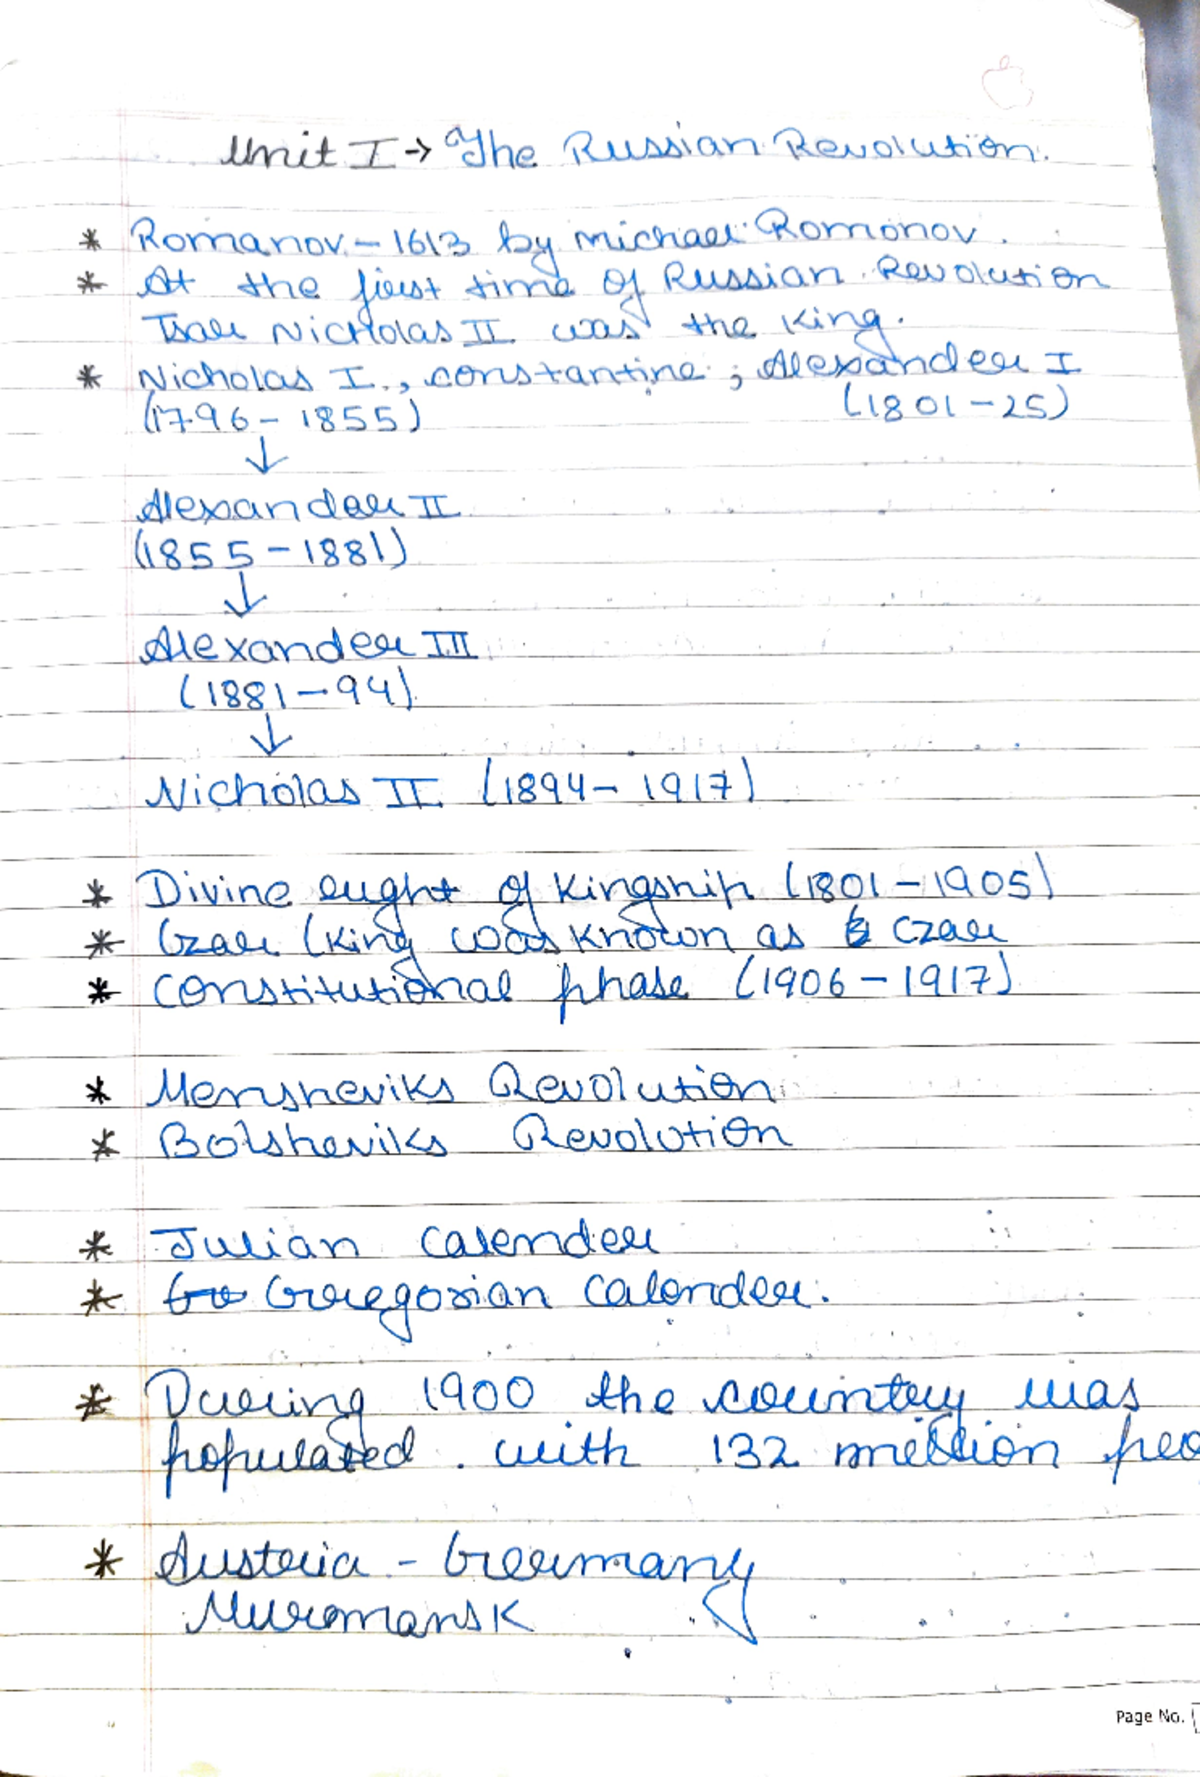 Unit I → The Russian Revolution.
* Romanov - 1613 by Michael Romonov.
* At the first time of Russian Revolution
Tsar Nicholas II was the King.
* Nicholas I, constantine, Alexander I
(1796 - 1855) (1801-25)
↓
Alexander II
(1855 - 1881)
↓
Alexander III
(1881-94)
↓
Nicholas II (1894 - 1917)
* Divine right of Kingship (1801 - 1905)
* Czar (King was known as Czar
* Constitutional phase (1906 - 1917)
* Mensheviks Revolution
* Bolsheviks Revolution
* Julian Calender
* Gregorian Calender.
* During 1900 the country was
populated with 132 million peo
* Austria - Germany
Muromansk
Page No.